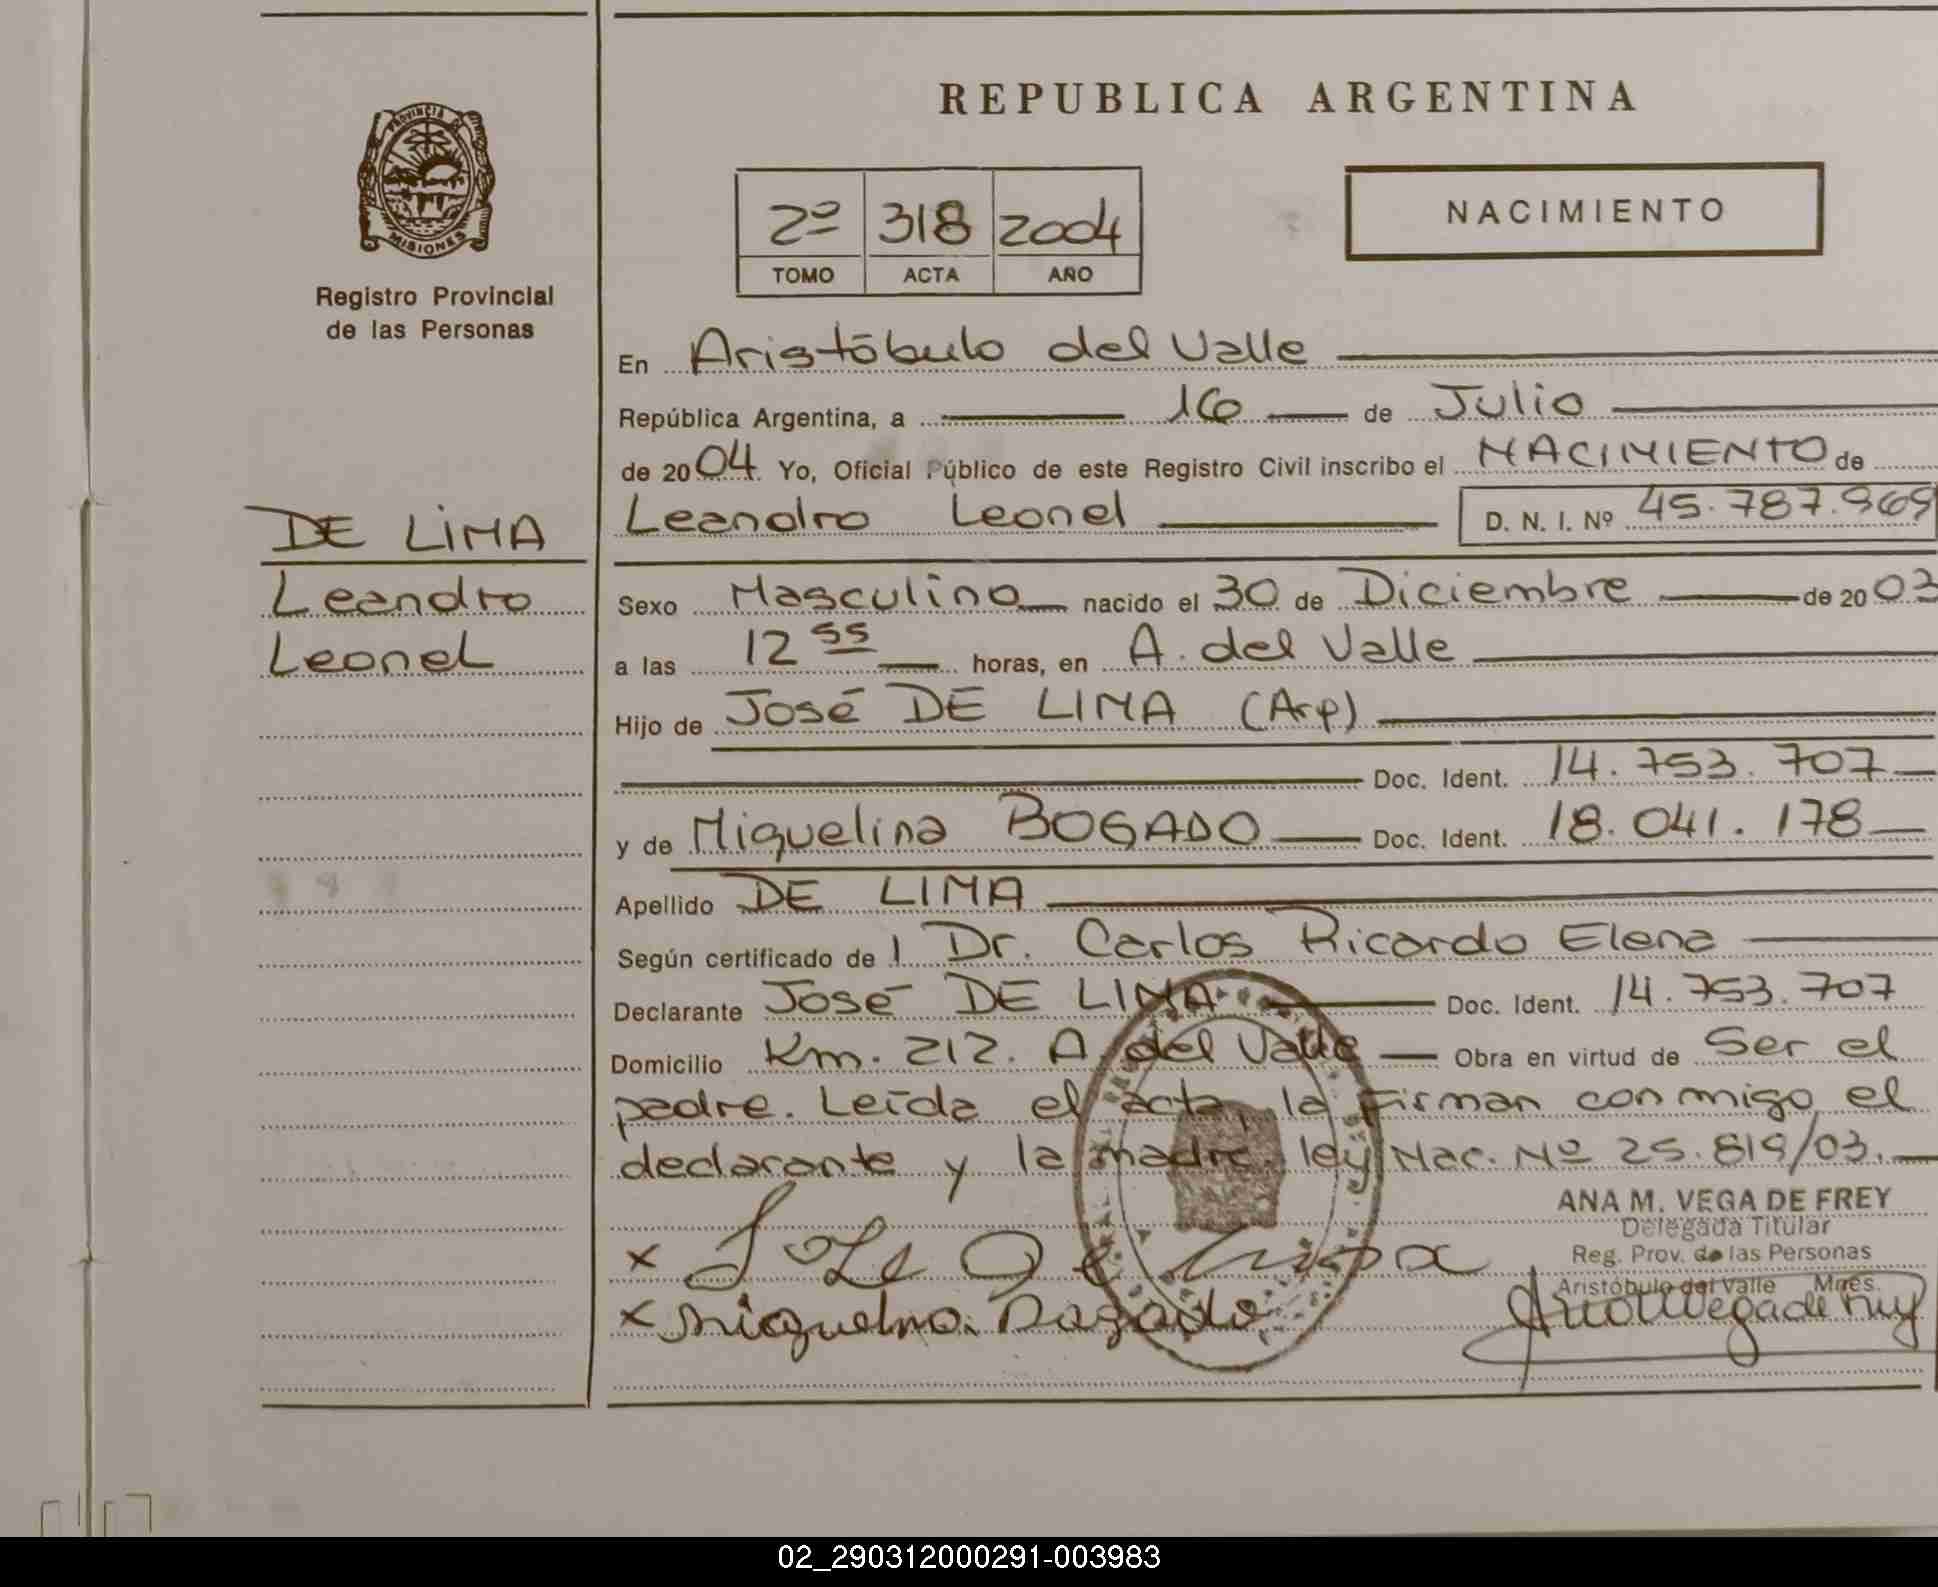 REPUBLICA ARGENTINA
PROVINCIA DE
MISIONES
Registro Provincial
de las Personas
2º 318 2004
TOMO ACTA AÑO
NACIMIENTO
En Aristóbulo del Valle
República Argentina, a 16 de Julio
de 2004 Yo, Oficial Público de este Registro Civil inscribo el NACIMIENTO de
DE LIMA
Leandro
Leonel
Leandro Leonel D. N. I. Nº 45.787.969
Sexo Masculino nacido el 30 de Diciembre de 2003
a las 12 55 horas, en A. del Valle
Hijo de José DE LIMA (Arg)
Doc. Ident. 14.753.707
y de Miguelina BOGADO Doc. Ident. 18.041.178
Apellido DE LIMA
Según certificado de l Dr. Carlos Ricardo Elena
Declarante José DE LIMA Doc. Ident. 14.753.707
Domicilio Km. 212. A. del Valle Obra en virtud de Ser el
padre. Leída el acta, la firman conmigo el
declarante y la madre. ley Nac. Nº 25.819/03.
ANA M. VEGA DE FREY
Delegada Titular
Reg. Prov. de las Personas
Aristóbulo del Valle Mnes.
x Jose De Lima
x Miguelina Bogado
02_290312000291-003983